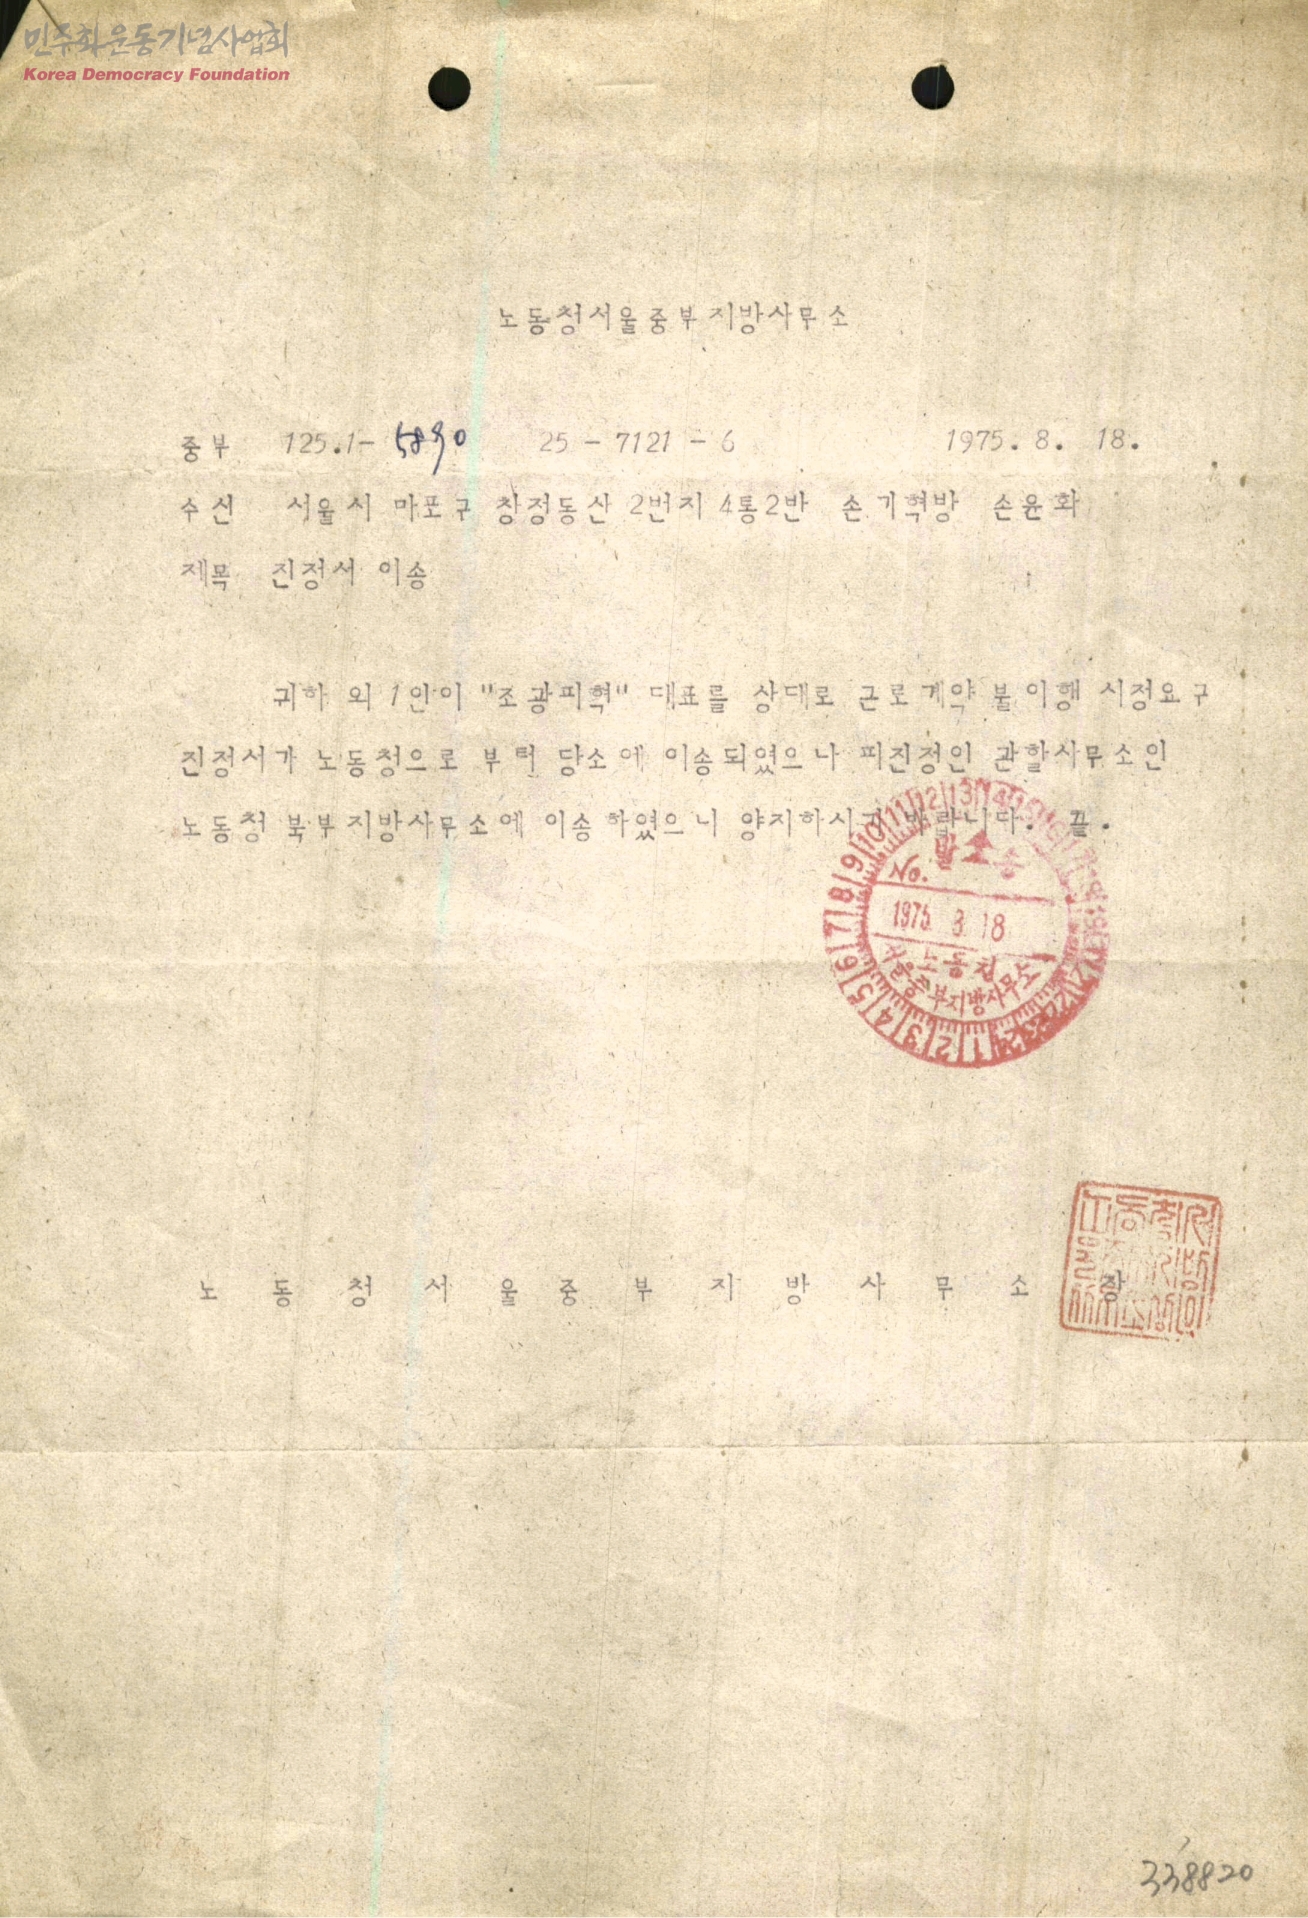 민주화운동기념사업회
Korea Democracy Foundation
노동청서울중부지방사무소
중부 125.1- 5890 25 - 7121 - 6 1975. 8. 18.
수신 서울시 마포구 창정동산 2번지 4통2반 손기혁방 손윤화
제목 진정서 이송
귀하 외 1인이 "조광피혁" 대표를 상대로 근로계약 불이행 시정요구
진정서가 노동청으로 부터 당소에 이송되였으나 피진정인 관할사무소인
노동청 북부지방사무소에 이송하였으니 양지하시기 바랍니다. 끝.
9 10 11 12 13 14
No. 발송
1975. 8. 18
노동청
서울중부지방사무소
8 7 6 5 4 3 2 1 24
노동청서울중부지방사무소장
338820